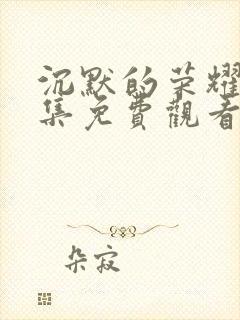 沉默的荣耀
集免費觀看
朵寂